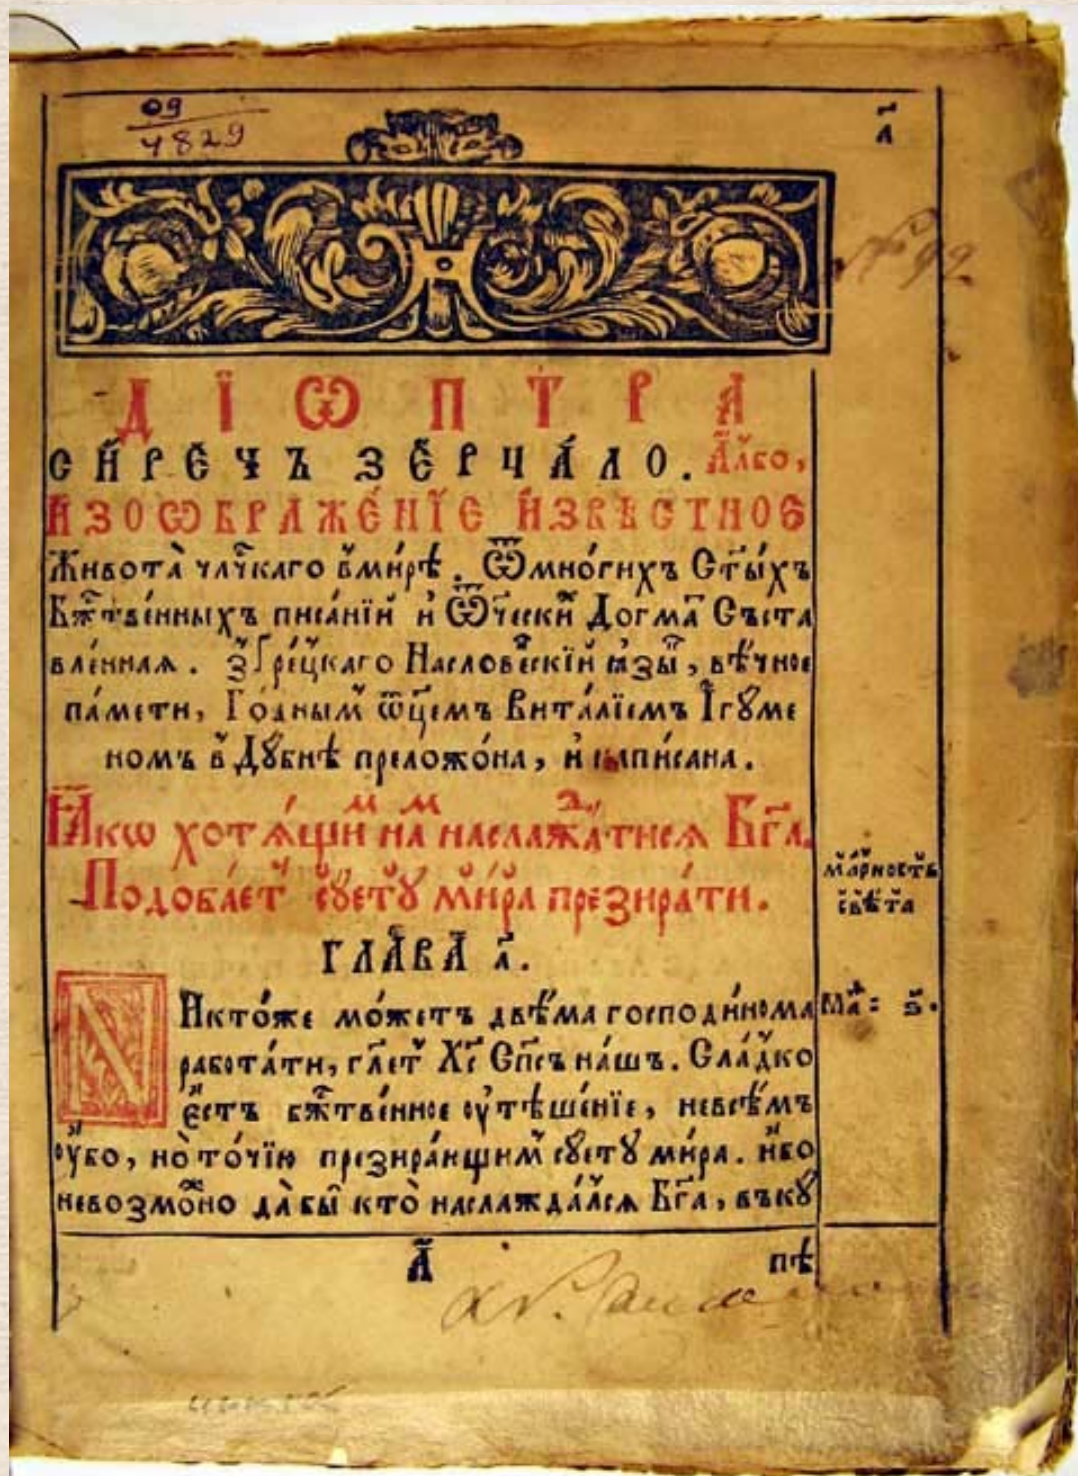 09
4829
а҃
№ 92
ДІѠПТРА
СИ́РЕЧЪ ЗЕРЧА́ЛО. А҆́лбо,
И҆ЗОѠБРАЖЕ́НЇЕ И҆ЗВѢСТНОЕ
Живота̀ чл҃чкаго в̾ми́рѣ. Ѿмно́гихъ Ст҃ы́хъ
Бж҃тве́нныхъ писа́нїй и҆ Ѿчески Догма Съста
вле́нная. з̾Гре́цкаго Насловескїй ꙗзы, вѣ́чное
па́мети, Го́дным ѿц҃емъ Вита́лїемъ І҆гꙋме
номъ в̾Дꙋбнѣ преложо́на, и҆ написана.
Ꙗ҆́кѡ хотѧ́щим на́м наслажда́тисѧ Бг҃а.
Подоба́ет сꙋетꙋ̀ ми́ра презира́ти.
ГЛАВА̀ а҃.
марность
свѣ́та
НИкто́же мо́жетъ двѣ́ма господи́нома
Маѳ: ѕ҃.
рабо́тати, гл҃ет Хс҃ Сп҃съ на́шъ. Сла́дко
є҆́стъ бж҃тве́нное ᲂу҆тѣше́нїе, невсѣ́мъ
ᲂу҆́бо, но̀ то́чїю презира́ющим сꙋетꙋ̀ ми́ра. и҆́бо
невозмо́жно да̀бы кто̀ наслажда́лсѧ Бг҃а, въкꙋ́
А҃
пѣ